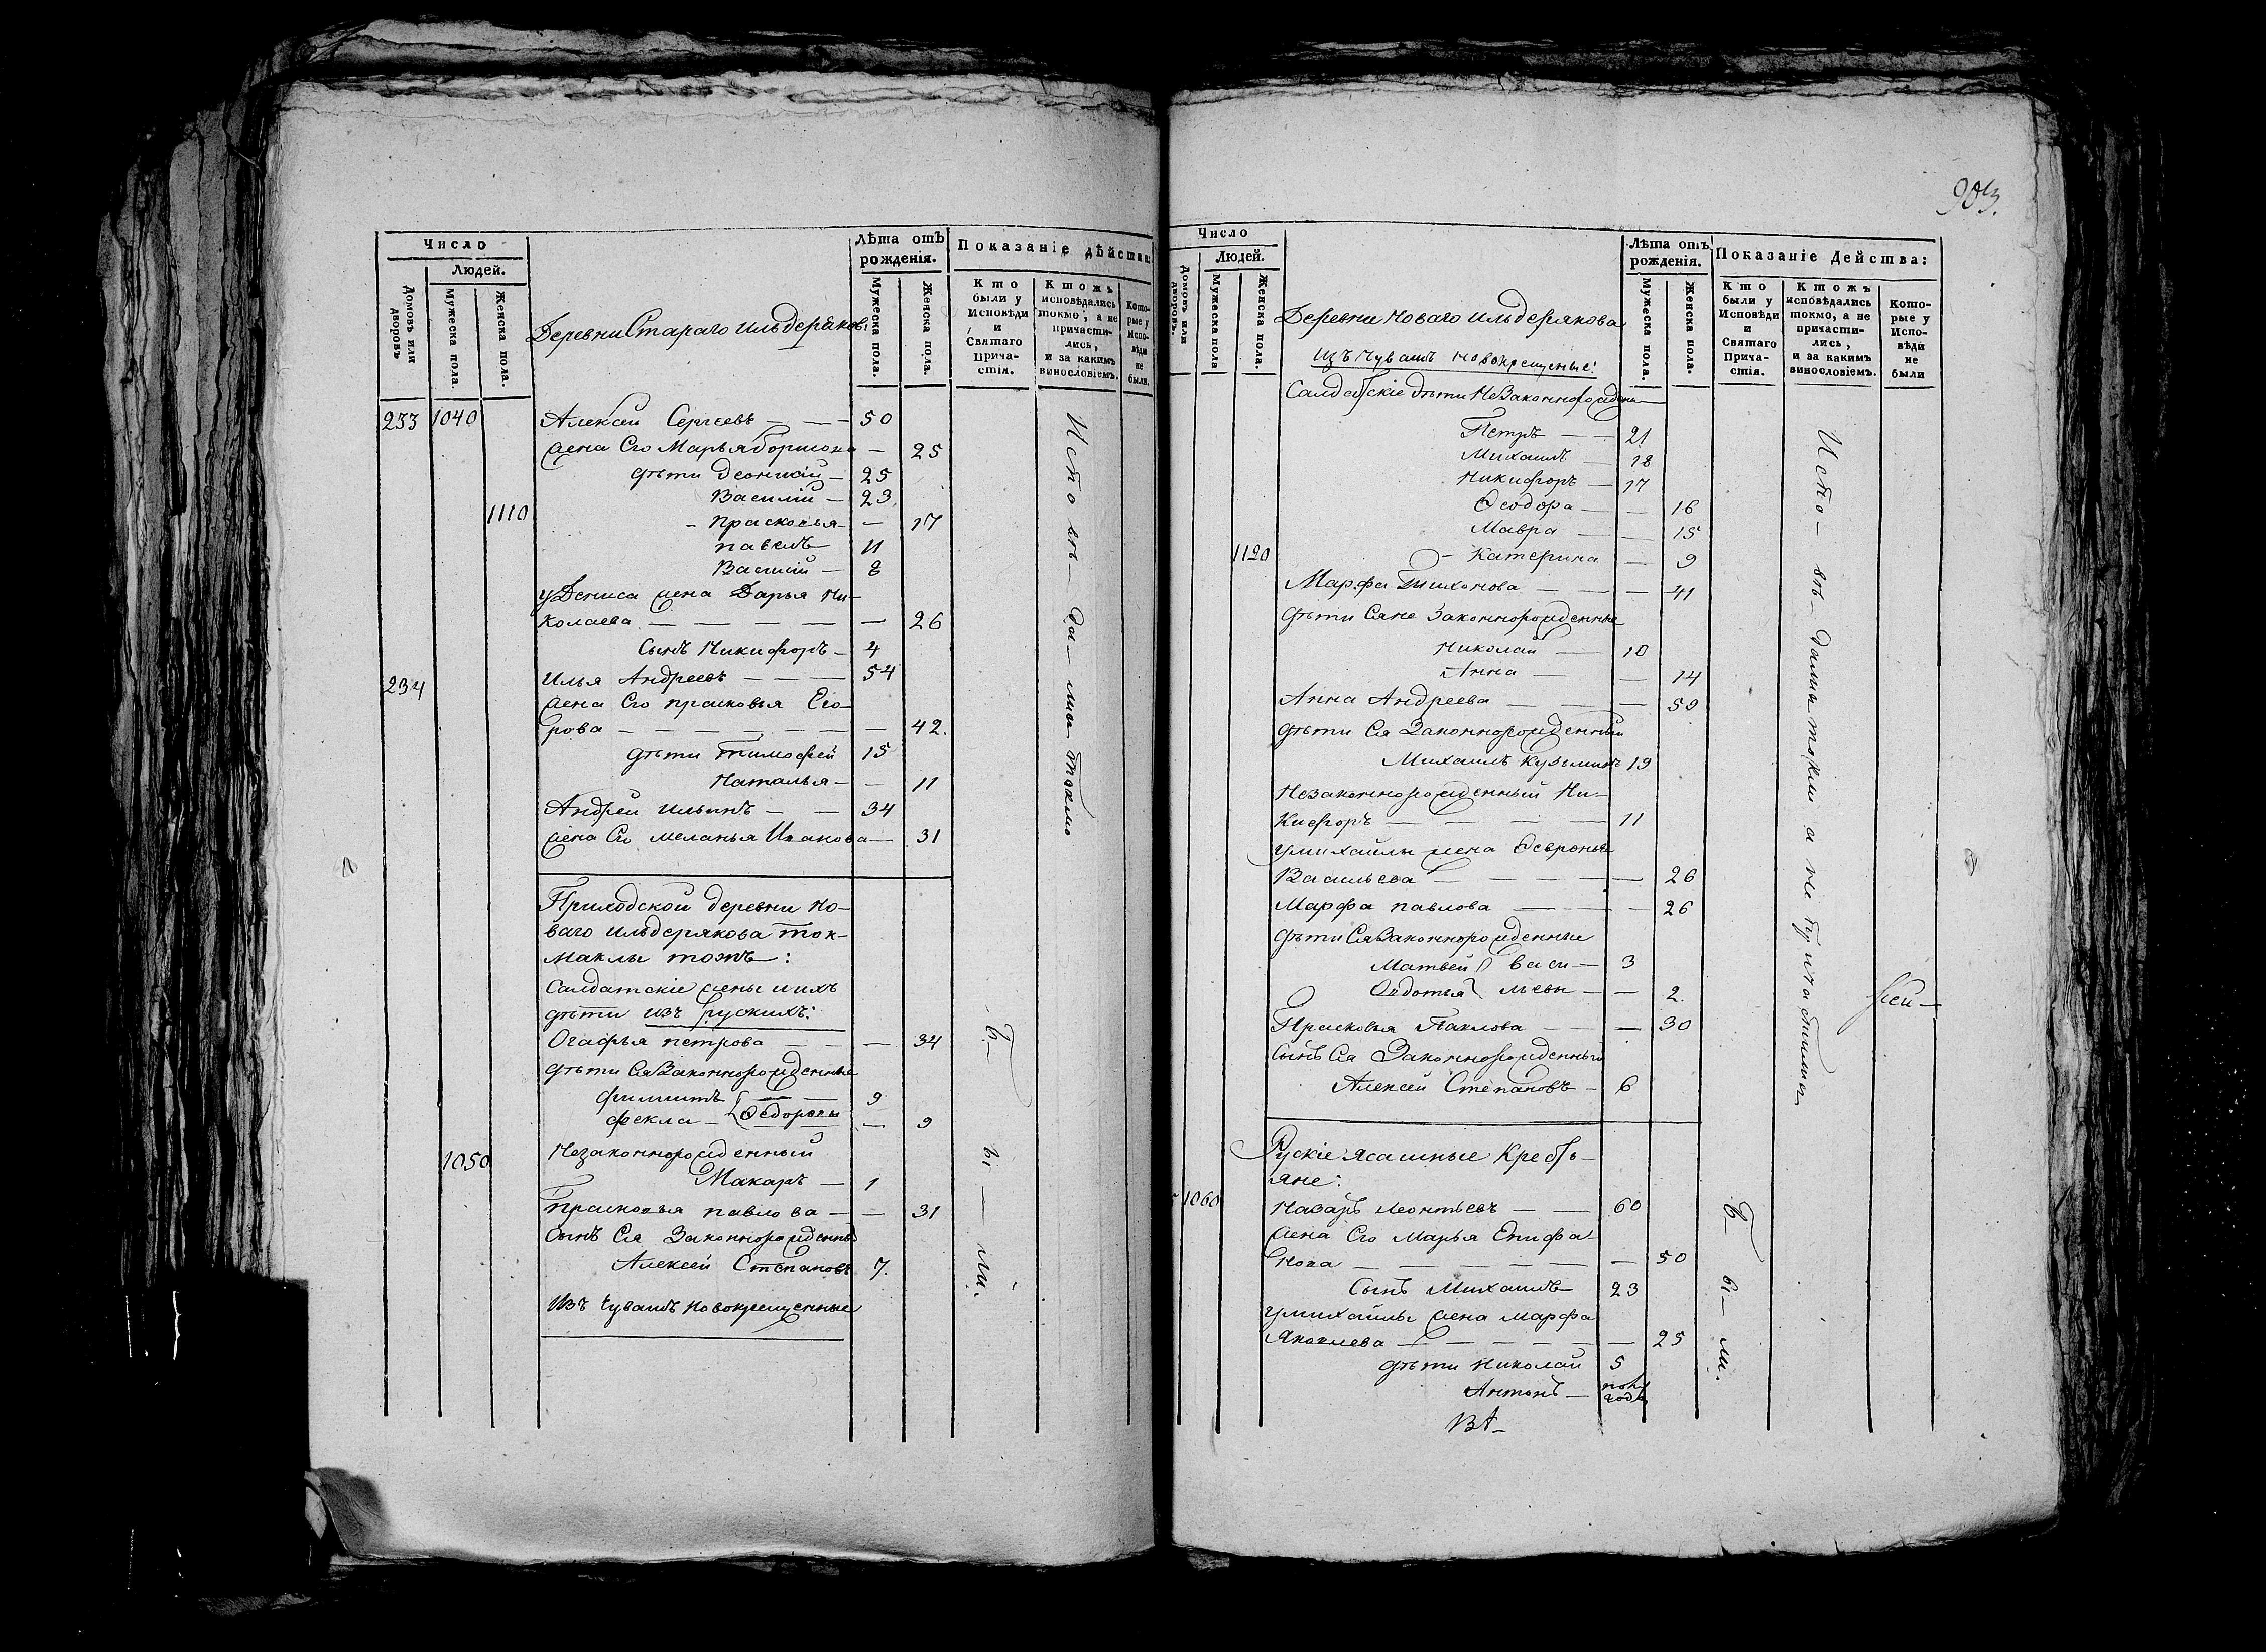 903.
Число
Людей.
Домовъ или дворовъ
Мужеска пола.
Женска пола.
Деревни Стараго Ильдеряков:
Лѣта отъ рожденія.
Мужеска пола.
Женска пола.
Показаніе дѣйства:
Кто были у Исповѣди и Святаго Причастія.
Ктожъ исповѣдались токмо, а не причастились, и за какимъ винословіемъ.
Которые у Исповѣди не были.
233 1040 Алексей Сергеевъ — — — 50
жена Его Марья — 25
дѣти Деонисій — 25
Василій — 23
1110 - Прасковья — — 17
павелъ 11
Василій — 8
у Дениса жена Дарья Ни-
колаева — — — — — 26
Сынъ Никифоръ — 4
234 Илья Андреевъ — — — 54
жена Его прасковья Его-
рова — — — — — — 42.
дѣти Тимофей 15
Наталья — — 11
Андрей Ильинъ — — 34
жена Его меланья Иванова — 31
Приходской деревни но-
ваго ильдерякова ток-
маклы тожъ:
Салдатскіе жены и ихъ
дѣти изъ рускихъ:
Огафья петрова — — — 34
дѣти Ея Законнорожденные
филиппъ — — 9
фекла — Федоровы — 9
Незаконнорожденный
1050 Макаръ — 1
Прасковья павлова — — 31
Сынъ Ея Законнорожденный
Алексей Степановъ 7.
Изъ Чувашъ новокрещенные
Испо вѣ — да — лись токмо
б — ы — ли.
Число
Людей.
Домовъ или дворовъ.
Мужеска пола
Женска пола.
Деревни Новаго Ильдерякова
изъ Чувашъ новокрещеные:
Лѣта отъ рожденія.
Мужеска пола.
Женска пола.
Показаніе Действа:
Кто были у Исповѣди и Святаго Причастія.
Ктожъ исповѣдались токмо, а не причастились, и за какимъ винословіемъ.
Которые у Исповѣди не были
Салдатскіе дѣти Незаконнорожден—
Петръ — — 21
Михаилъ — 18
Никифоръ — 17
Феодора — — 16
Мавра — — 15
1120 - Катерина — 9
Марфа Тихонова — — — 41
дѣти Ея не Законнорожденные
Николай — 10
Анна — — 14
Анна Андреева — — — 59
дѣти Ея Законнорожденный
Михаилъ Кузьминъ 19
Незаконнорожденный Ни-
кифоръ — — — — 11
у михайлы жена Февронья
Васильева — — — — — 26
Марфа павлова — — — 26
дѣти Ея Законнорожденные
Матвей Васи — 3
Овдотья льевы — — 2.
Прасковья Павлова — — 30
Сынъ Ея Законнорожденный
Алексей Степановъ — 6
Рускіе Ясашные Кресть-
яне:
1060 Назаръ Леонтьевъ — — 60
жена Его Марья Епифа-
нова — — — — — — 50
Сынъ Михаилъ 23
у михайлы жена марфа
Яковлева — — — — — 25
дѣти Николай 5
Антонъ — полгода
Испо — вѣ — дались токмо а не причастились
б — ы — ли.